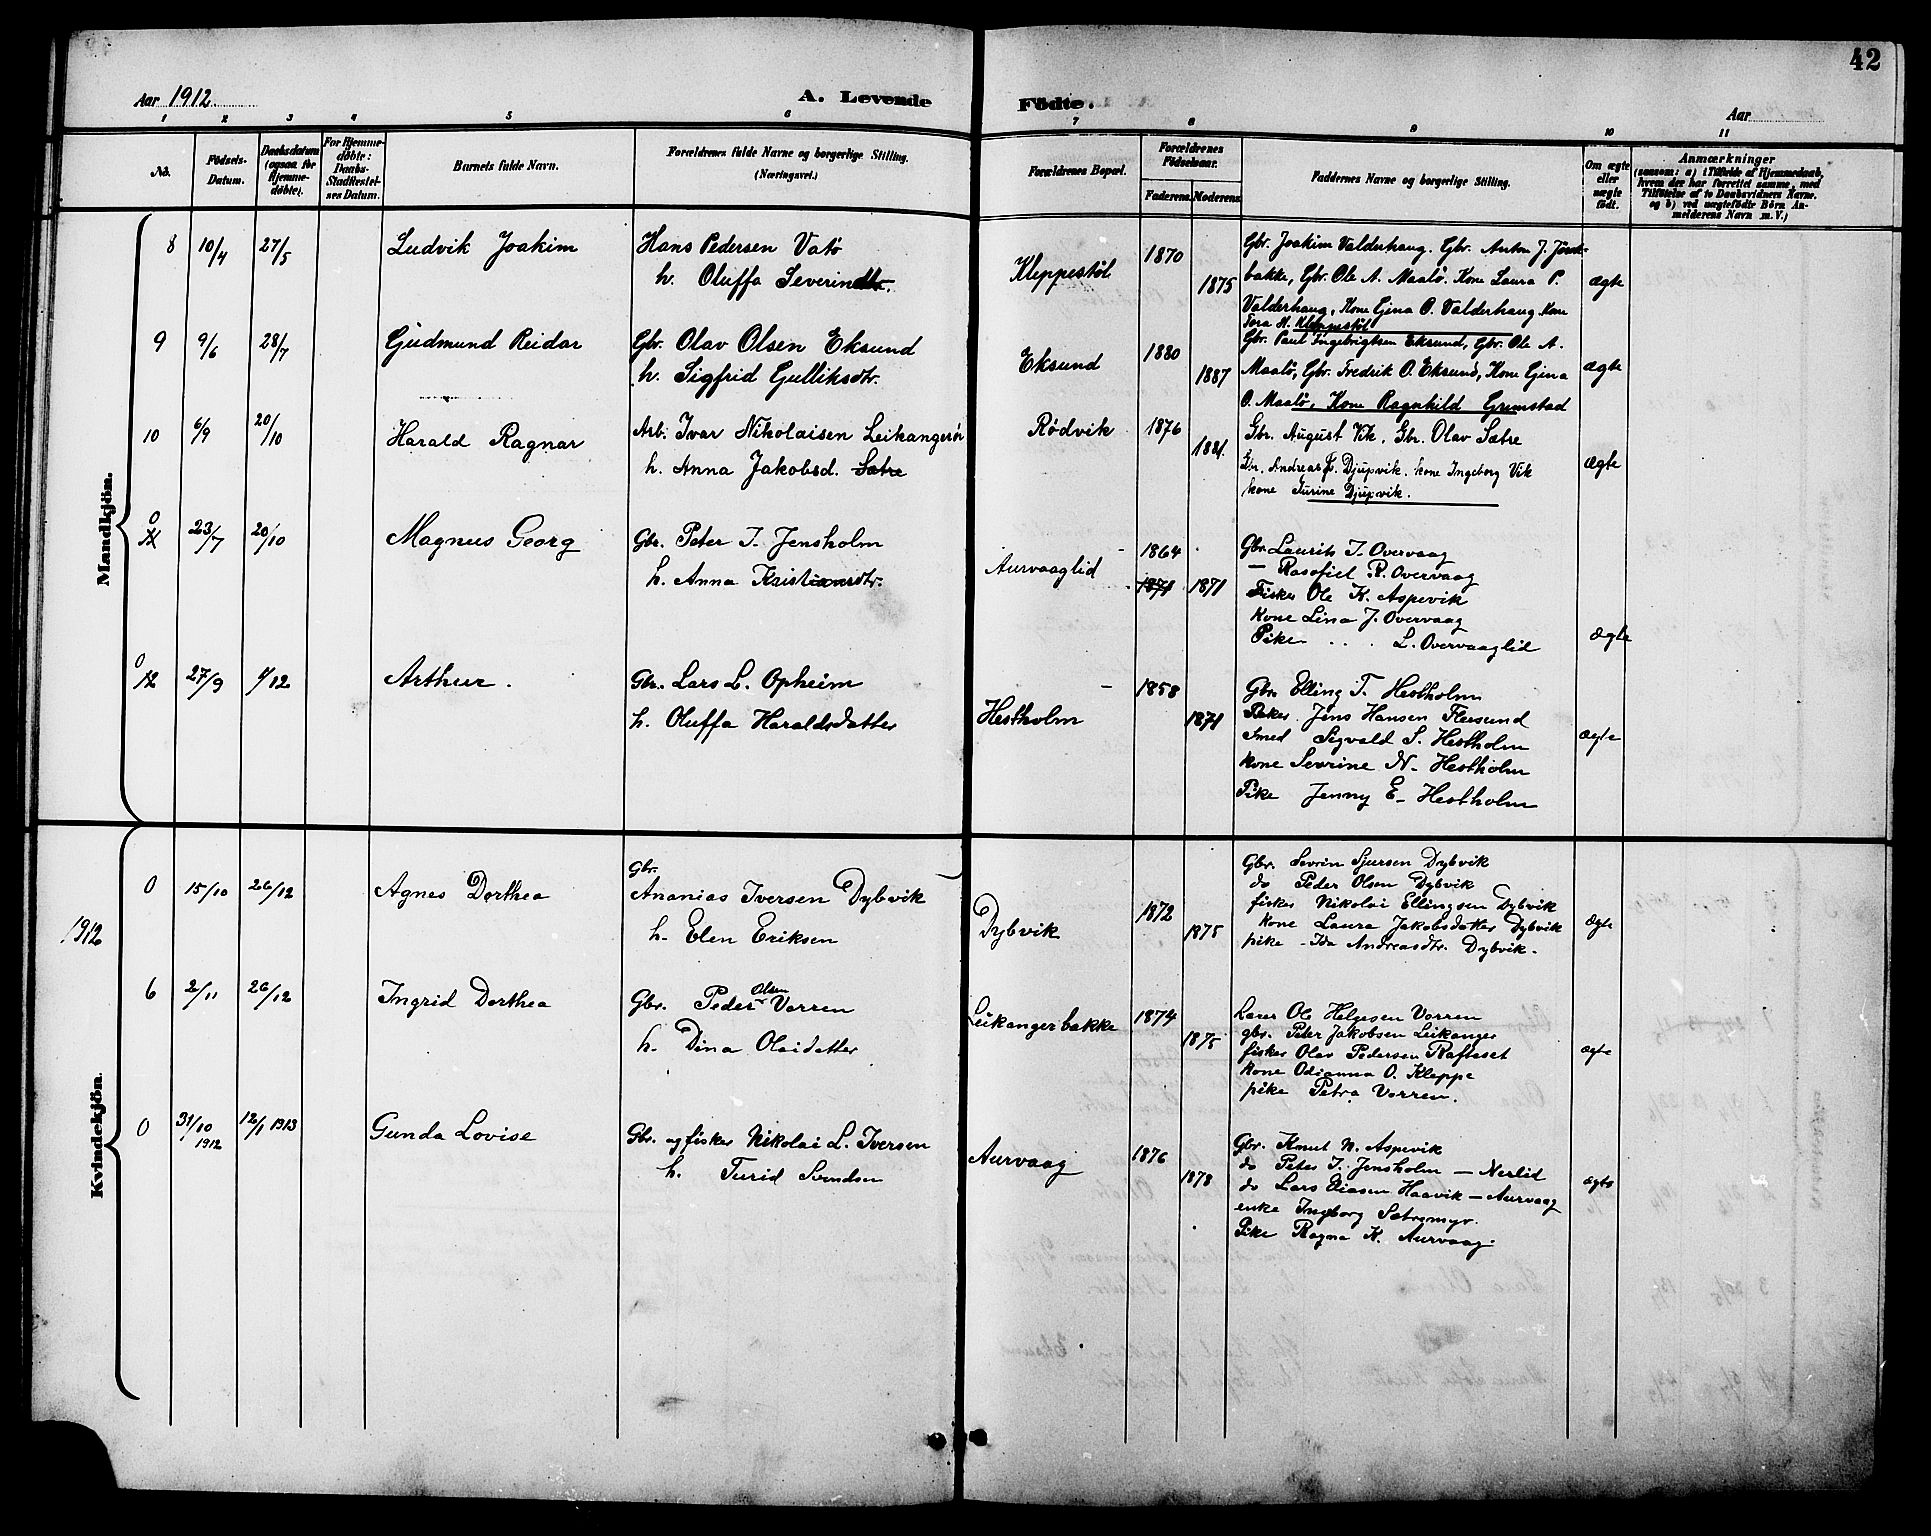 42
Aar 1912
A. Levende
Födte.
Aar
1 2 3 4 5 6 7 8 9 10 11
No.
Födsels-
Datum.
Daabsdatum
(ogsaa for
Hjemme-
döbte).
For Hjemme-
döbte:
Daabs-
Stadfestel-
ses Datum.
Barnets fulde Navn.
Forældrenes fulde Navne og borgerlige Stilling.
(Næringsvei.)
Forældrenes Bopæl.
Forældrenes
Födselsaar.
Faderens. Moderens.
Faddernes Navne og borgerlige Stilling.
Om ægte
eller
uægte
födt.
Anmærkninger
(saasom: a) i Tilfælde af Hjemmedaab,
hvem der har forrettet samme, med
Tilföielse af to Daabsvidners Navne,
og b) ved uægtefödte Börn An-
melderens Navn m. V.)
Mandkjön.
8 10/4 27/5 Ludvik Joakim
Hans Pedersen Vatö
h. Oluffa Severindtr.
Kleppestöl 1870
1875
Gbr. Joakim Valderhaug. Gbr. Anton J.
bakke, Gbr. Ole A. Maalö. Kone Laura P.
Valderhaug, Kone Gjina O. Valderhaug. Kone
Tora H. Kleppestöl
ægte
9 9/6 28/7 Gudmund Reidar
Gbr. Olav Olsen Eksund
h. Sigfrid Gulliksdtr.
Eksund 1880
1887
Gbr. Paul Ingebrigtsen Eksund, Gbr. Ole A.
Maalö, Gbr. Fredrik O. Eksund, Kone Gjina
O. Maalö, Kone Ragnhild Grimstad
ægte
10 6/9 20/10 Harald Ragnar
Arb. Ivar Nikolaisen Leikangerör
h. Anna Jakobsd. Sætre
Rødvik 1876
1881.
Gbr. August Vik, Gbr. Olav Sætre
Gbr. Andreas P. Djupvik. kone Ingeborg Vik
kone Turine Djupvik.
ægte
0
23/7 20/10 Magnus Georg
Gbr. Peter I. Jensholm
h. Anna Kristiansdtr.
Aurvaaglid 1864
1871 1871
Gbr. Laurits I. Overvaag
— R. Overvaag
Fisker Ole K. Aspevik
Kone Lina J. Overvaag
Pike . . . L. Overvaaglid
ægte
0
12 27/9 1/12 Arthur.
Gbr. Lars L. Opheim
h. Oluffa Haraldsdatter
Hestholm 1858
1871
Gbr Elling T. Hestholm
Jens Hansen Flusund
Smed Sigvald S. Hestholm
Kone Sevrine N. Hestholm
Pike Jenny E. Hestholm
ægte
Kvindekjön.
1912
0 15/10 26/12 Agnes Dorthea
Gbr.
Ananias Iversen Dybvik
h. Elen Eriksen
Dybvik 1872
1875
Gbr. Sevrin Sjursen Dybvik
do Peder Olsen Dybvik
fisker Nikolai Ellingsen Dybvik
kone Laura Jakobsdatter Dybvik
pike - Ida Andreasdtr. Dybvik.
ægte
6 2/11 26/12 Ingrid Dorthea
Gbr. Peder Olsen Vorren
h. Dina Olaidatter
Leikangerbakke 1874
1875
Lærer Ole Helgesen Vorren
gbr. Peter Jakobsen Leikanger
fisker Olav Pedersen Rafteset
kone Odianna O. Kleppe
pike Petra Vorren.
ægte
0 31/10 1912 12/1 1913 Gunda Lovise
Gbr. og fisker Nikolai L. Iversen
h. Turid Svendsen
Aurvaag 1876
1878
Gbr. Knut N. Aspevik
do Peter I. Jensholm — Nerlid
do Lars Eiasen Haavik — Aurvaag
enke Ingborg Sætremyr.
Pike Ragna K. Aurvaag.
ægte